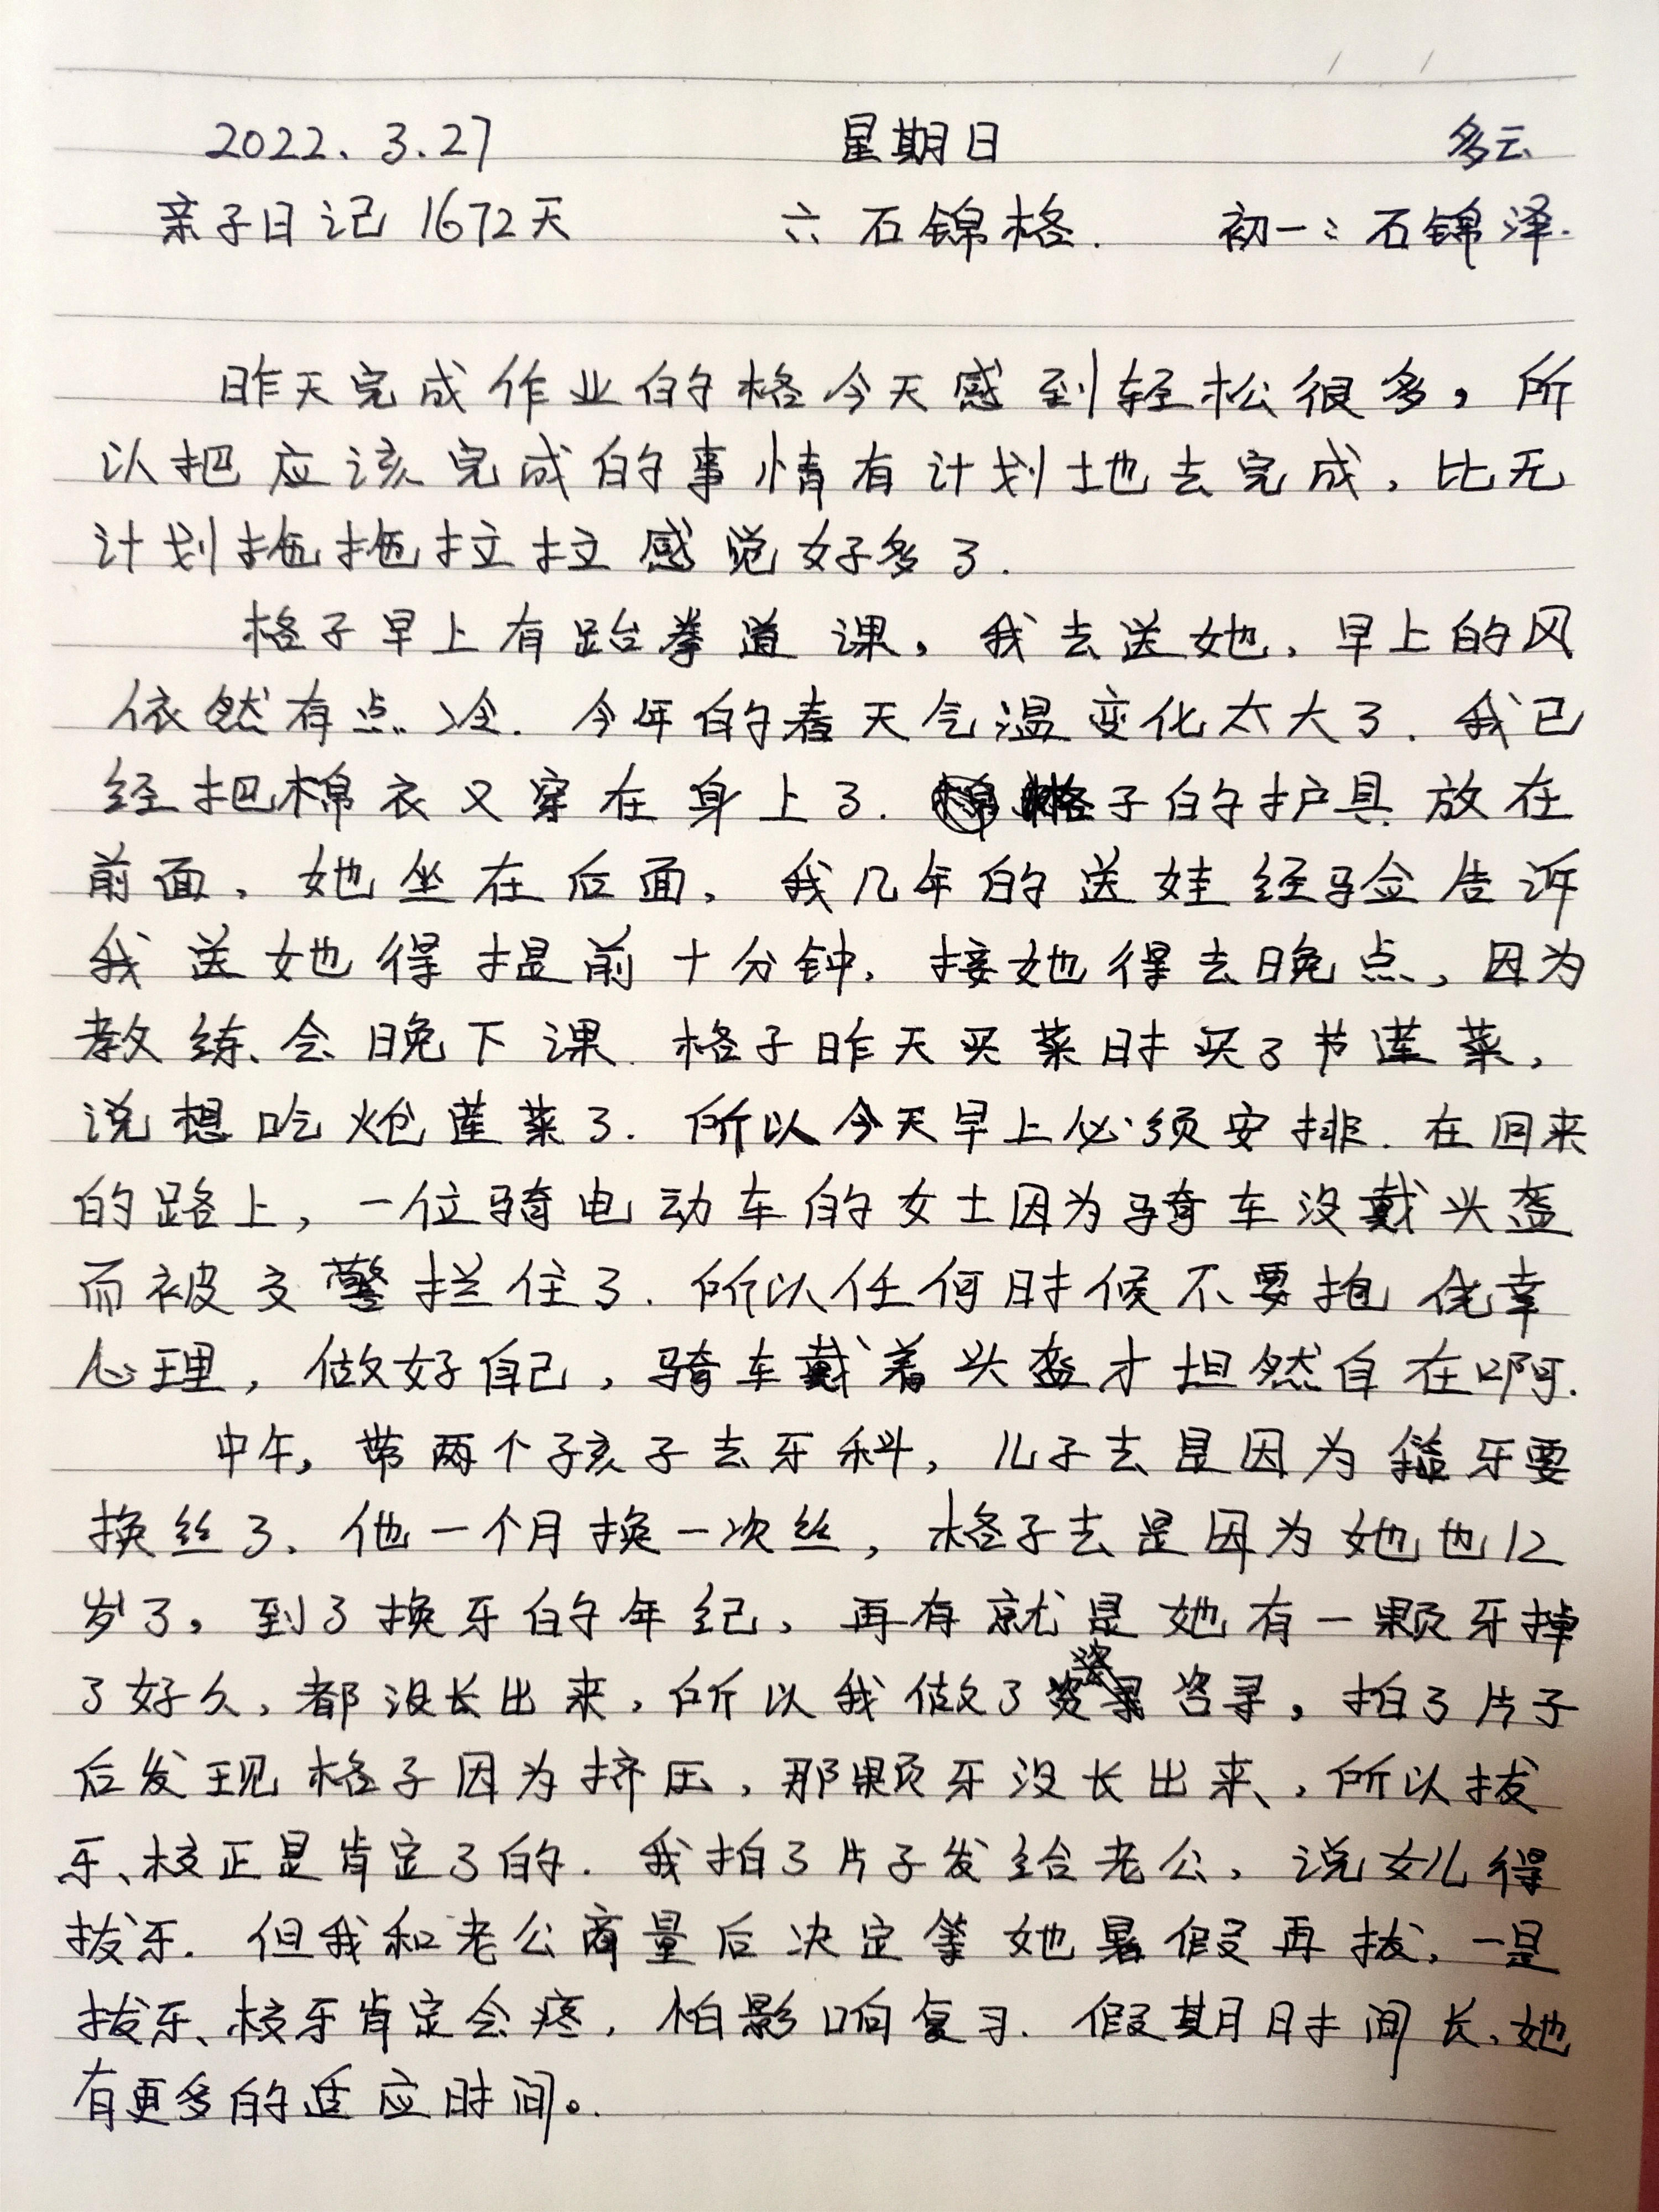 2022.3.27 星期日 多云
亲子日记1672天 六 石锦格. 初一:石锦泽.
昨天完成作业的格今天感到轻松很多,所
以把应该完成的事情有计划地去完成,比无
计划拖拖拉拉感觉好多了.
格子早上有跆拳道课,我去送她,早上的风
依然有点冷.今年的春天气温变化太大了.我已
经把棉衣又穿在身上了.格子的护具放在
前面,她坐在后面,我几年的送娃经验告诉
我送她得提前十分钟.接她得去晚点,因为
教练会晚下课.格子昨天买菜时买了节莲菜,
说想吃炝莲菜了.所以今天早上必须安排.在回来
的路上,一位骑电动车的女士因为骑车没戴头盔
而被交警拦住了.所以任何时候不要抱侥幸
心理,做好自己,骑车戴着头盔才坦然自在啊.
中午,带两个孩子去牙科,儿子去是因为箍牙要
换丝了、他一个月换一次丝,格子去是因为她也12
岁了,到了换牙的年纪、再有就是她有一颗牙掉
了好久,都没长出来,所以我做了咨寻,拍了片子
后发现格子因为挤压,那颗牙没长出来,所以拔
牙、校正是肯定了的.我拍了片子发给老公,说女儿得
拔牙.但我和老公商量后决定等她暑假再拔,一是
拔牙、校牙肯定会疼,怕影响复习.假期时间长,她
有更多的适应时间。